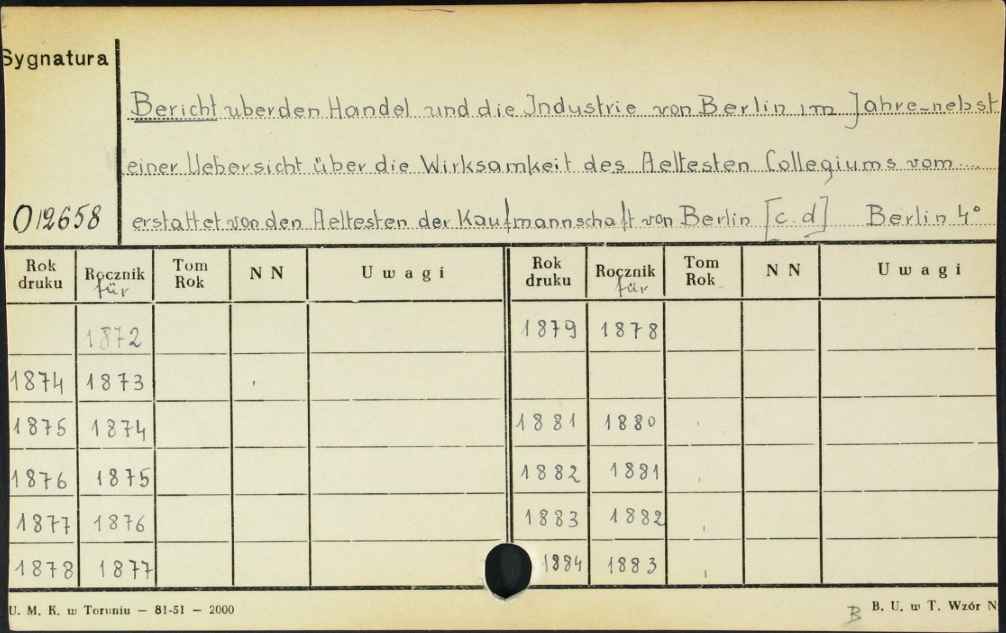 Sygnatura
Bericht uber den Handel und die Industrie von Berlin im Jahre - nebst
einer Uebersicht über die Wirksamkeit des Aeltesten Collegiums vom ...
012658 erstattet von den Aeltesten der Kaufmannschaft von Berlin [c.d] Berlin 4°
Rok druku Rocznik für Tom Rok N N Uwagi Rok druku Rocznik für Tom Rok N N Uwagi
1872 1879 1878
1874 1873
1875 1874 1881 1880
1876 1875 1882 1881
1877 1876 1883 1882
1878 1877 1884 1883
U. M. K. w Toruniu — 81-51 — 2000 B B. U. w T. Wzór N